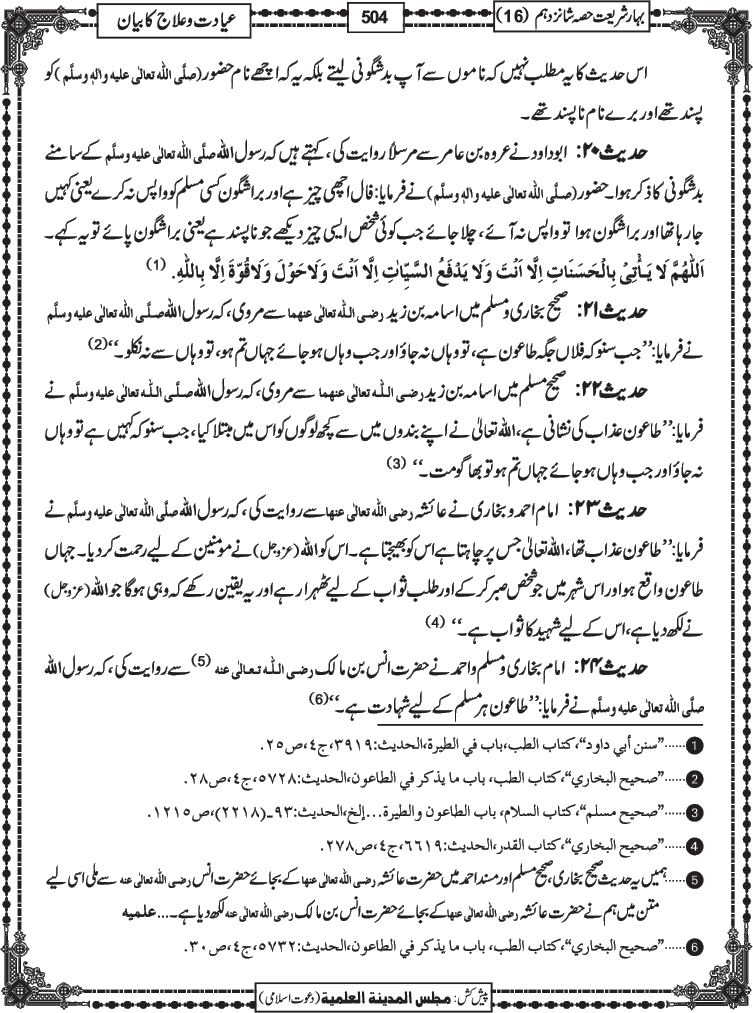 بہارِ شریعت حصہ شانزدہم (16)
504
عیادت و علاج کا بیان
اس حدیث کا یہ مطلب نہیں کہ ناموں سے آپ بدشگونی لیتے بلکہ یہ کہ اچھے نام حضور (صلَّی اللہ تعالٰی علیہ واٰلہٖ وسلَّم) کو
پسند تھے اور برے نام ناپسند تھے۔
حدیث ۲۰: ابوداود نے عروہ بن عامر سے مرسلاً روایت کی، کہتے ہیں کہ رسول اللہ صلَّی اللہ تعالٰی علیہ وسلَّم کے سامنے
بدشگونی کا ذکر ہوا۔ حضور (صلَّی اللہ تعالٰی علیہ واٰلہٖ وسلَّم) نے فرمایا: فال اچھی چیز ہے اور برا شگون کسی مسلم کو واپس نہ کرے یعنی کہیں
جارہا تھا اور برا شگون ہوا تو واپس نہ آئے، چلا جائے جب کوئی شخص ایسی چیز دیکھے جو ناپسند ہے یعنی برا شگون پائے تو یہ کہے۔
اَللّٰھُمَّ لَا یَأْتِیْ بِالْحَسَنَاتِ اِلَّا اَنْتَ وَلَا یَدْفَعُ السَّیِّاٰتِ اِلَّا اَنْتَ وَلَاحَوْلَ وَلَاقُوَّةَ اِلَّا بِاللّٰہِ. (1)
حدیث ۲۱: صحیح بخاری و مسلم میں اسامہ بن زید رضی اللہ تعالٰی عنہما سے مروی، کہ رسول اللہ صلَّی اللہ تعالٰی علیہ وسلَّم
نے فرمایا: ’’جب سنو کہ فلاں جگہ طاعون ہے، تو وہاں نہ جاؤ اور جب وہاں ہوجائے جہاں تم ہو، تو وہاں سے نہ نکلو۔‘‘ (2)
حدیث ۲۲: صحیح مسلم میں اسامہ بن زید رضی اللہ تعالٰی عنہما سے مروی، کہ رسول اللہ صلَّی اللہ تعالٰی علیہ وسلَّم نے
فرمایا: ’’طاعون عذاب کی نشانی ہے، اللہ تعالیٰ نے اپنے بندوں میں سے کچھ لوگوں کو اس میں مبتلا کیا، جب سنو کہ کہیں ہے تو وہاں
نہ جاؤ اور جب وہاں ہوجائے جہاں تم ہو تو بھاگو مت۔‘‘ (3)
حدیث ۲۳: امام احمد و بخاری نے عائشہ رضی اللہ تعالٰی عنہا سے روایت کی، کہ رسول اللہ صلَّی اللہ تعالٰی علیہ وسلَّم نے
فرمایا: ’’طاعون عذاب تھا، اللہ تعالیٰ جس پر چاہتا ہے اس کو بھیجتا ہے۔ اس کو اللہ (عزوجل) نے مومنین کے لیے رحمت کردیا۔ جہاں
طاعون واقع ہو اور اس شہر میں جو شخص صبر کرکے اور طلبِ ثواب کے لیے ٹھہرا رہے اور یہ یقین رکھے کہ وہی ہوگا جو اللہ (عزوجل)
نے لکھ دیا ہے، اس کے لیے شہید کا ثواب ہے۔‘‘ (4)
حدیث ۲۴: امام بخاری و مسلم و احمد نے حضرت انس بن مالک رضی اللہ تعالٰی عنہ (5) سے روایت کی، کہ رسول اللہ
صلَّی اللہ تعالٰی علیہ وسلَّم نے فرمایا: ’’طاعون ہر مسلم کے لیے شہادت ہے۔‘‘ (6)
1 ......”سنن أبي داود“، کتاب الطب، باب في الطیرة، الحدیث:۳۹۱۹، ج٤، ص۲۵.
2 ......”صحیح البخاري“، کتاب الطب، باب ما یذکر في الطاعون، الحدیث:۵۷۲۸، ج٤، ص۲۸.
3 ......”صحیح مسلم“، کتاب السلام، باب الطاعون والطیرة...إلخ، الحدیث:۹۳۔(۲۲۱۸)، ص۱۲۱۵.
4 ......”صحیح البخاري“، کتاب القدر، الحدیث:۶۶۱۹، ج٤، ص۲۷۸.
5 ......ہمیں یہ حدیث صحیح بخاری، صحیح مسلم اور مسند احمد میں حضرت عائشہ رضی اللہ تعالٰی عنہا کے بجائے حضرت انس رضی اللہ تعالٰی عنہ سے ملی اسی لیے
متن میں ہم نے حضرت عائشہ رضی اللہ تعالٰی عنہا کے بجائے حضرت انس بن مالک رضی اللہ تعالٰی عنہ لکھ دیا ہے۔...علمیہ
6 ......”صحیح البخاري“، کتاب الطب، باب ما یذکر في الطاعون، الحدیث:۵۷۳۲، ج٤، ص۳۰.
پیش کش: مجلس المدینة العلمیة (دعوت اسلامی)